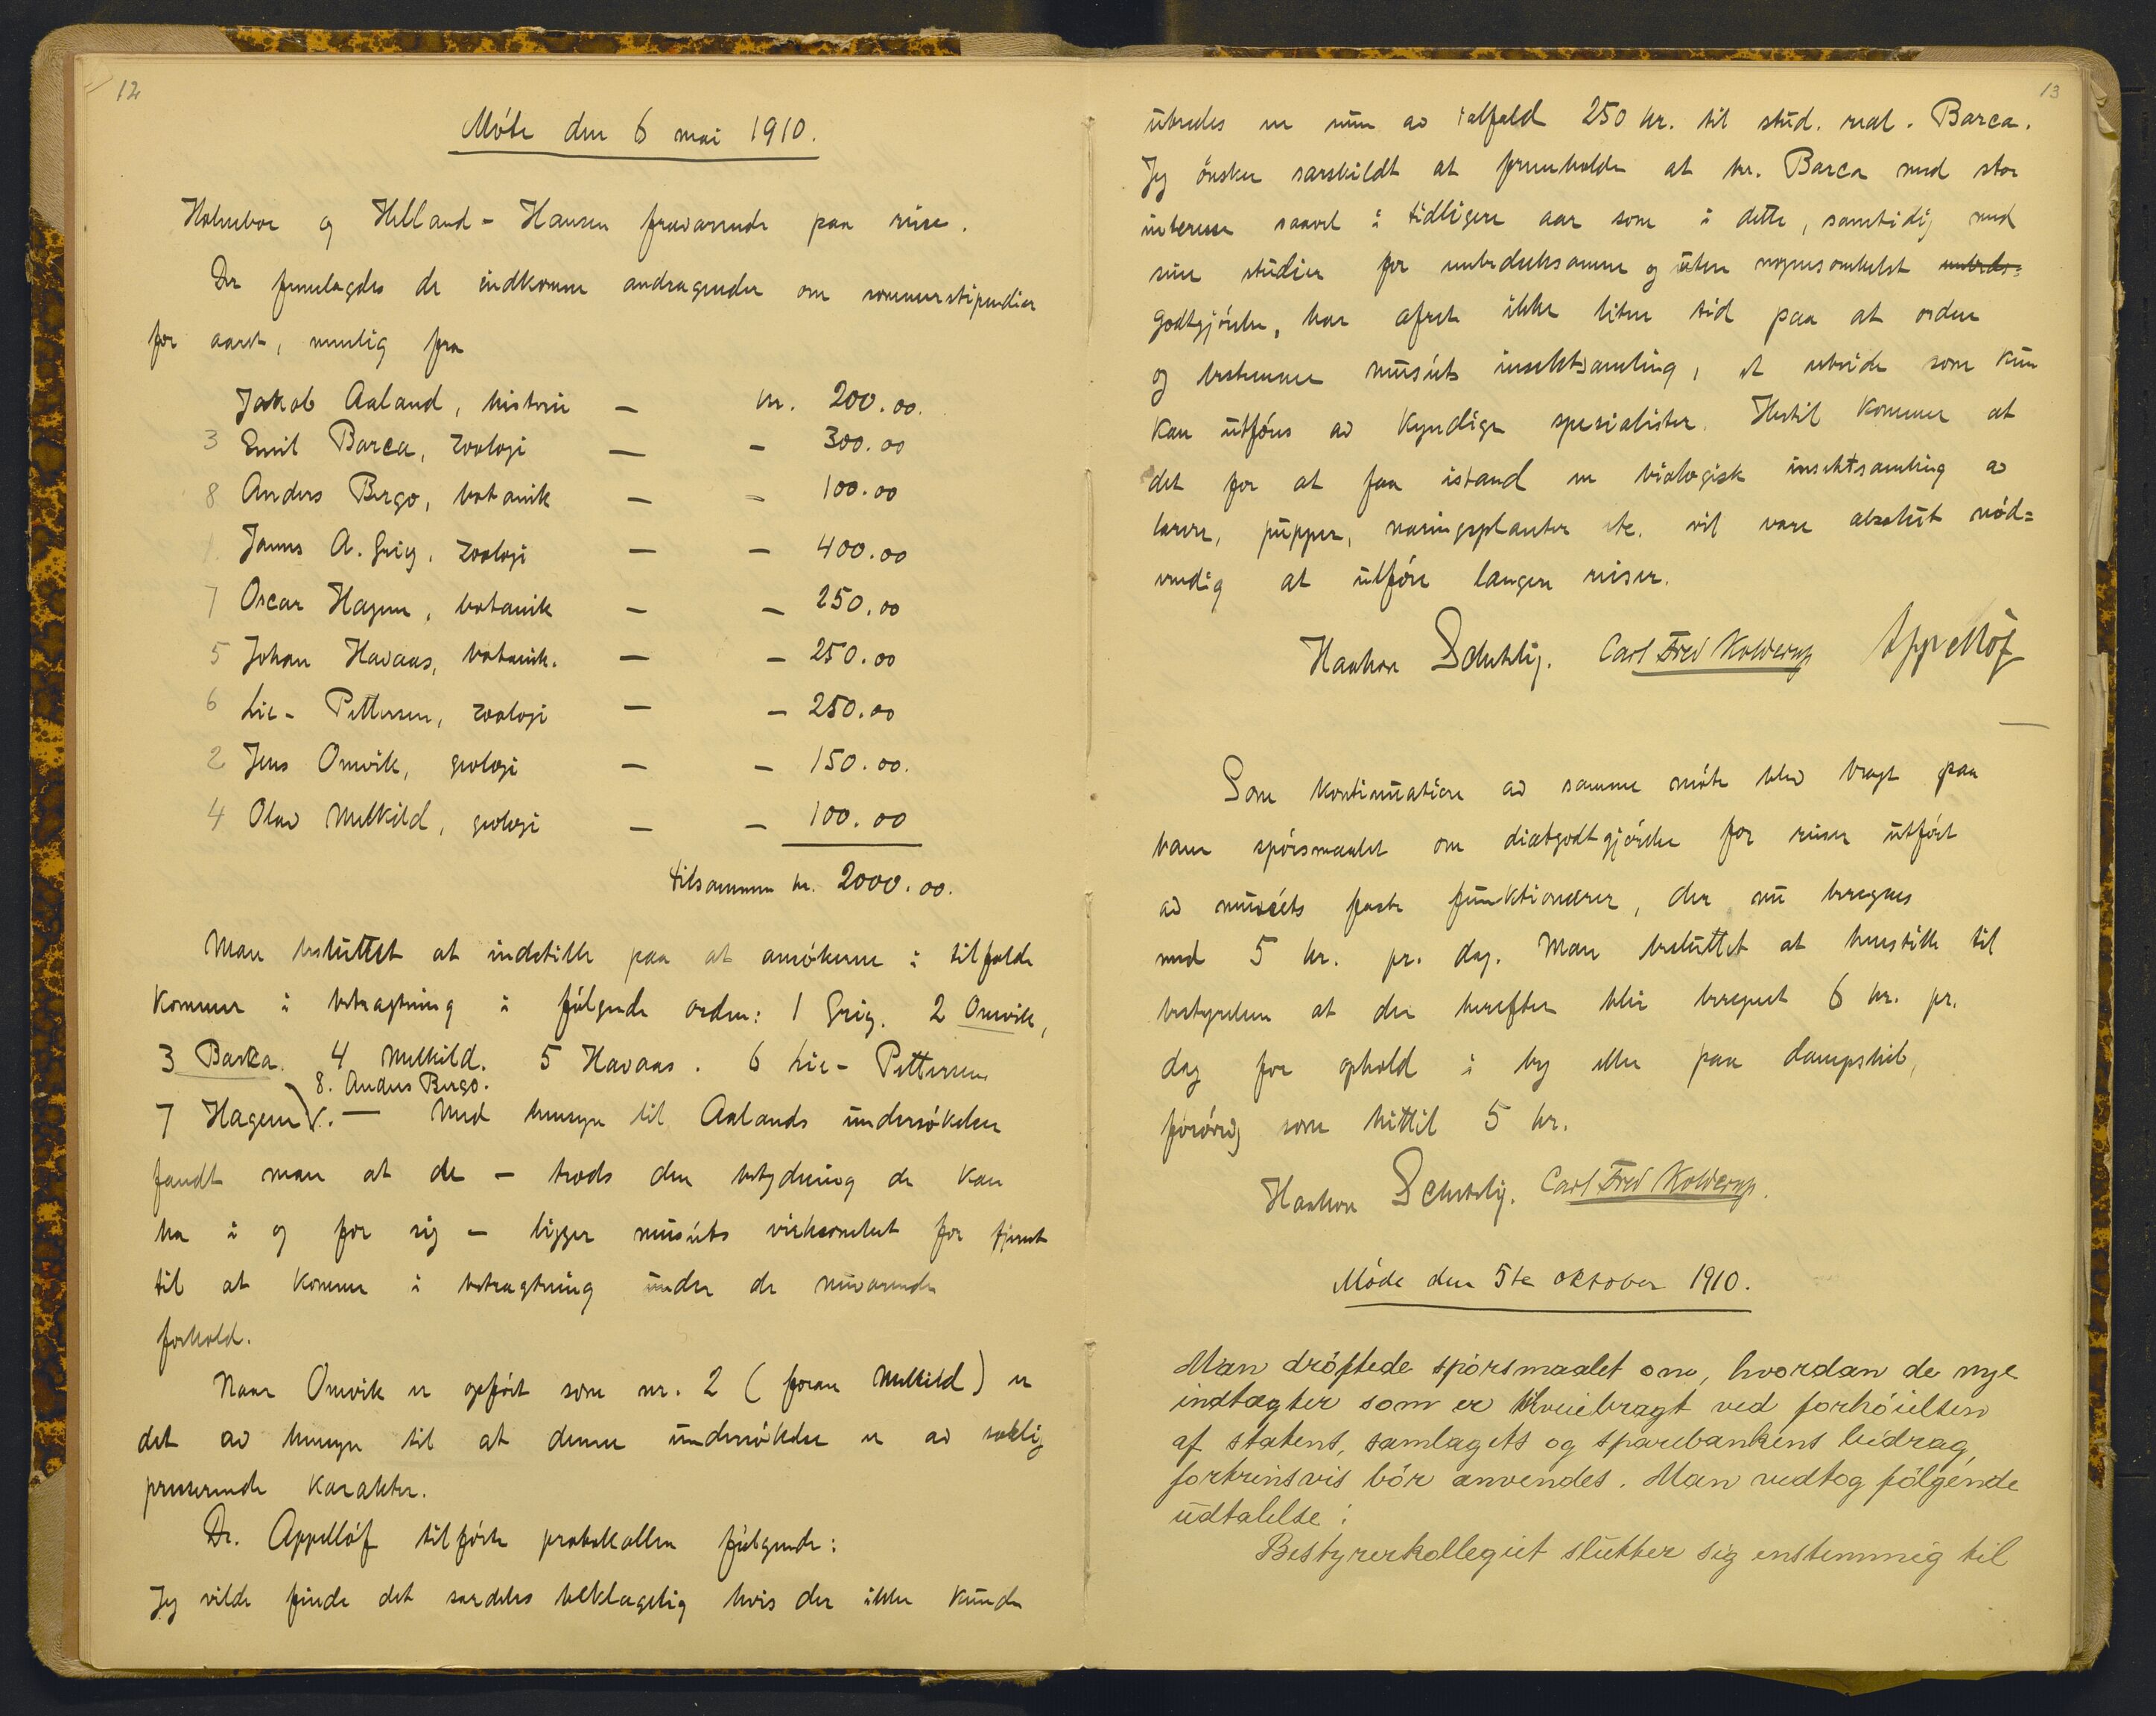 12
Möte den 6 mai 1910.
Holmboe og Helland-Hansen fraværende paa reise.
Der fremlagdes de indkomne andragender om sommerstipendier
for aaret, nemlig fra
Jakob Aaland, historie — kr. 200.00.
3 Emil Barca, zoologi — - 300.00
8 Anders Bergo, botanik — - 100.00
1. James A. Grieg, zoologi — - 400.00
7 Oscar Hagem, botanik — - 250.00
5 Johan Havaas, botanik. — - 250.00
6 Lie-Pettersen, zoologi — - 250.00
2 Jens Omvik, geologi — - 150.00.
4 Olav Melkild, geologi — - 100.00
tilsammen kr. 2000.00.
Man besluttet at indstille paa at ansökerne i tilfælde
kommer i betragtning i fölgende orden: 1 Grieg. 2 Omvik,
3 Barca. 4 Melkild. 5 Havaas. 6 Lie-Pettersen
8. Anders Bergo.
7 Hagem. — Med hensyn til Aalands undersökelser
fandt man at de — trods den betydning de kan
ha i og for sig — ligger muséets virksomhet for fjernt
til at komme i betragtning under de nuværende
forhold.
Naar Omvik er opfört som nr. 2 (foran Melkild) er
det av hensyn til at denne undersökelse er av saklig
presserende karakter.
Dr. Appellöf tilförte protokollen fölgende:
Jeg vilde finde det særdeles beklagelig hvis der ikke kunde
13
utredes en sum av ialfald 250 kr. til stud. real. Barca.
Jeg önsker særskildt at fremholde at hr. Barca med stor
interesse saavel i tidligere aar som i dette, samtidig med
sine studier for embedseksamen og uten nogensomhelst embeds=
godtgjörelse, har ofret ikke liten tid paa at ordne
og bestemme muséets insektsamling, et arbeide som kun
kan utföres av kyndige spesialister. Hertil kommer at
det for at faa istand en biologisk insektsamling av
larver, pupper, næringsplanter etc. vil være absolut nöd=
vendig at utföre længere reiser.
Haakon Schetelig. Carl Fred Kolderup Appellöf
Som kontinuation av samme möte blev bragt paa
bane spörsmaalet om diætgodtgjörelse for reiser utfört
av muséets faste funktionærer, der nu beregnes
med 5 kr. pr. dag. Man besluttet at henstille til
bestyrelsen at der herefter blir beregnet 6 kr. pr.
dag for ophold i by eller paa dampskib,
forövrig som hittil 5 kr.
Haakon Schetelig. Carl Fred Kolderup.
Möde den 5te oktober 1910.
Man dröftede spörsmaalet om, hvordan de nye
indtægter som er tilveiebragt ved forhöielsen
af statens, samlagets og sparebankens bidrag,
fortrinsvis bör anvendes. Man vedtog fölgende
udtalelse:
Bestyrerkollegiet slutter sig enstemmig til